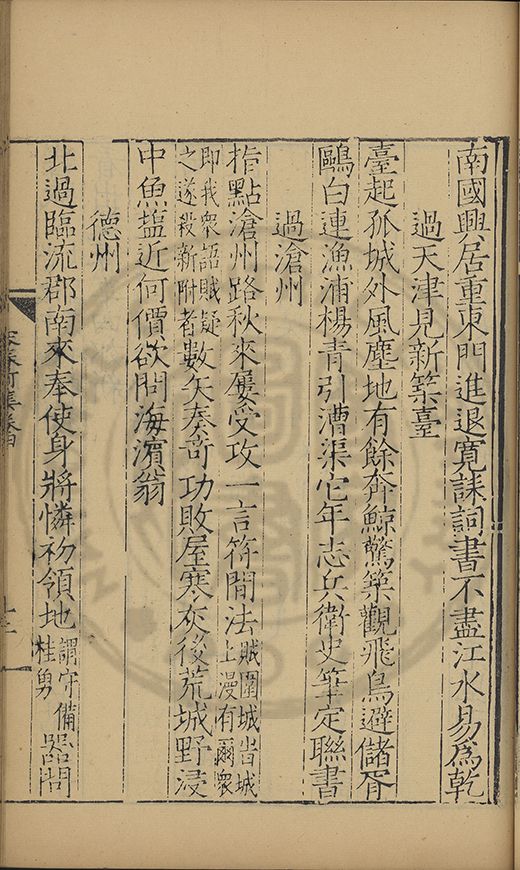 南國興居重東門進退寬誄詞書不盡江水易爲乾
過天津見新築臺
臺起孤城外風塵地有餘奔鯨驚築觀飛鳥避儲胥
鷗白連漁浦楊青引漕渠它年志兵衛史筆定聯書
過滄州
指點滄州路秋來屢受攻一言符間法賊圍城時城上漫有爾衆
即我衆語賊疑之遂殺新附者數矢奏奇功敗屋寒灰後荒城野浸
中魚塩近何價欲問海濱翁
德州
北過臨流郡南來奉使身將憐初領地謂守備桂勇器問